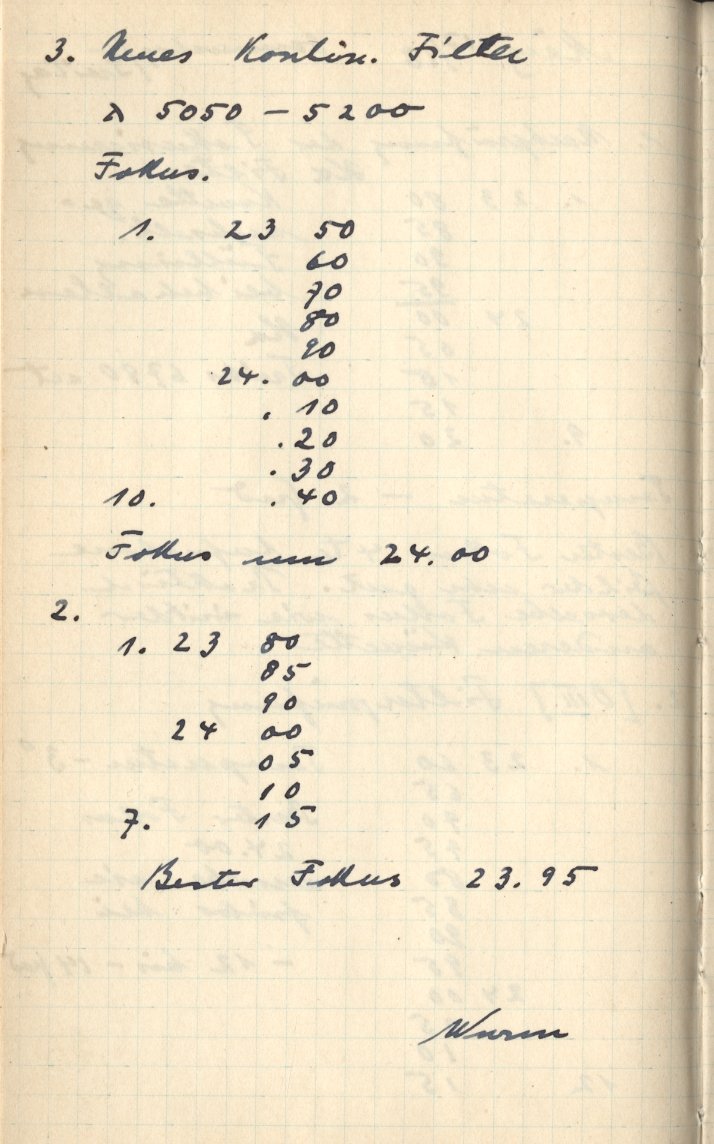 3. Neues Kontin. Filter
λ 5050 - 5200
Fokus.
1. 23 50
60
70
80
90
24. 00
. 10
. 20
. 30
10. . 40
Fokus um 24.00
2.
1. 23 80
85
90
24 00
05
10
7. 15
Bester Fokus 23.95
Wurm